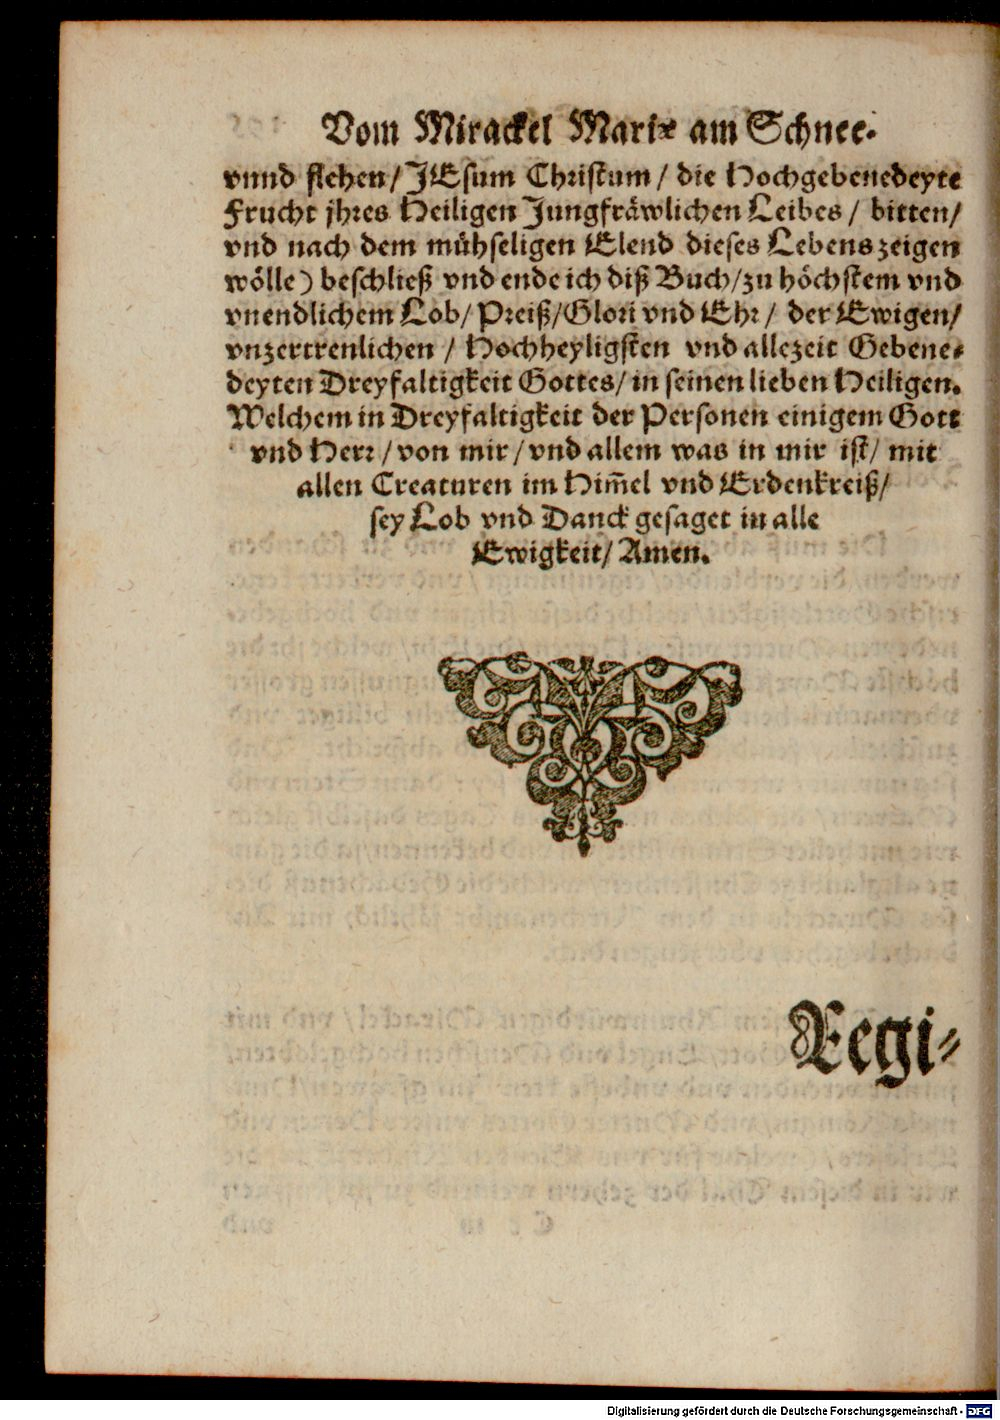 Vom Mirackel Mariæ am Schnee.
vnnd flehen/ JEsum Christum/ die Hochgebenedeyte
Frucht jhres Heiligen Jungfräwlichen Leibes/ bitten/
vnd nach dem mühseligen Elend dieses Lebens zeigen
wölle) beschließ vnd ende ich diß Buch/ zu höchstem vnd
vnendlichem Lob/ Preiß/ Glori vnd Ehr/ der Ewigen/
vnzertrenlichen/ Hochheyligsten vnd allezeit Gebene-
deyten Dreyfaltigkeit Gottes/ in seinen lieben Heiligen.
Welchem in Dreyfaltigkeit der Personen einigem Gott
vnd Herr/ von mir/ vnd allem was in mir ist/ mit
allen Creaturen im Him̄el vnd Erdenkreiß/
sey Lob vnd Danck gesaget in alle
Ewigkeit/ Amen.
Regi-
Digitalisierung gefördert durch die Deutsche Forschungsgemeinschaft - DFG